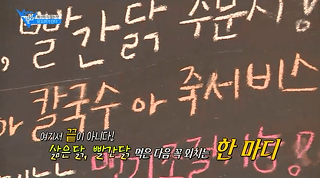 빨간닭 주문시
칼국수 아 죽서비스
여기서 끝이 아니다!
삶은닭, 빨간닭 먹은 다음 꼭 외치는 한 마디